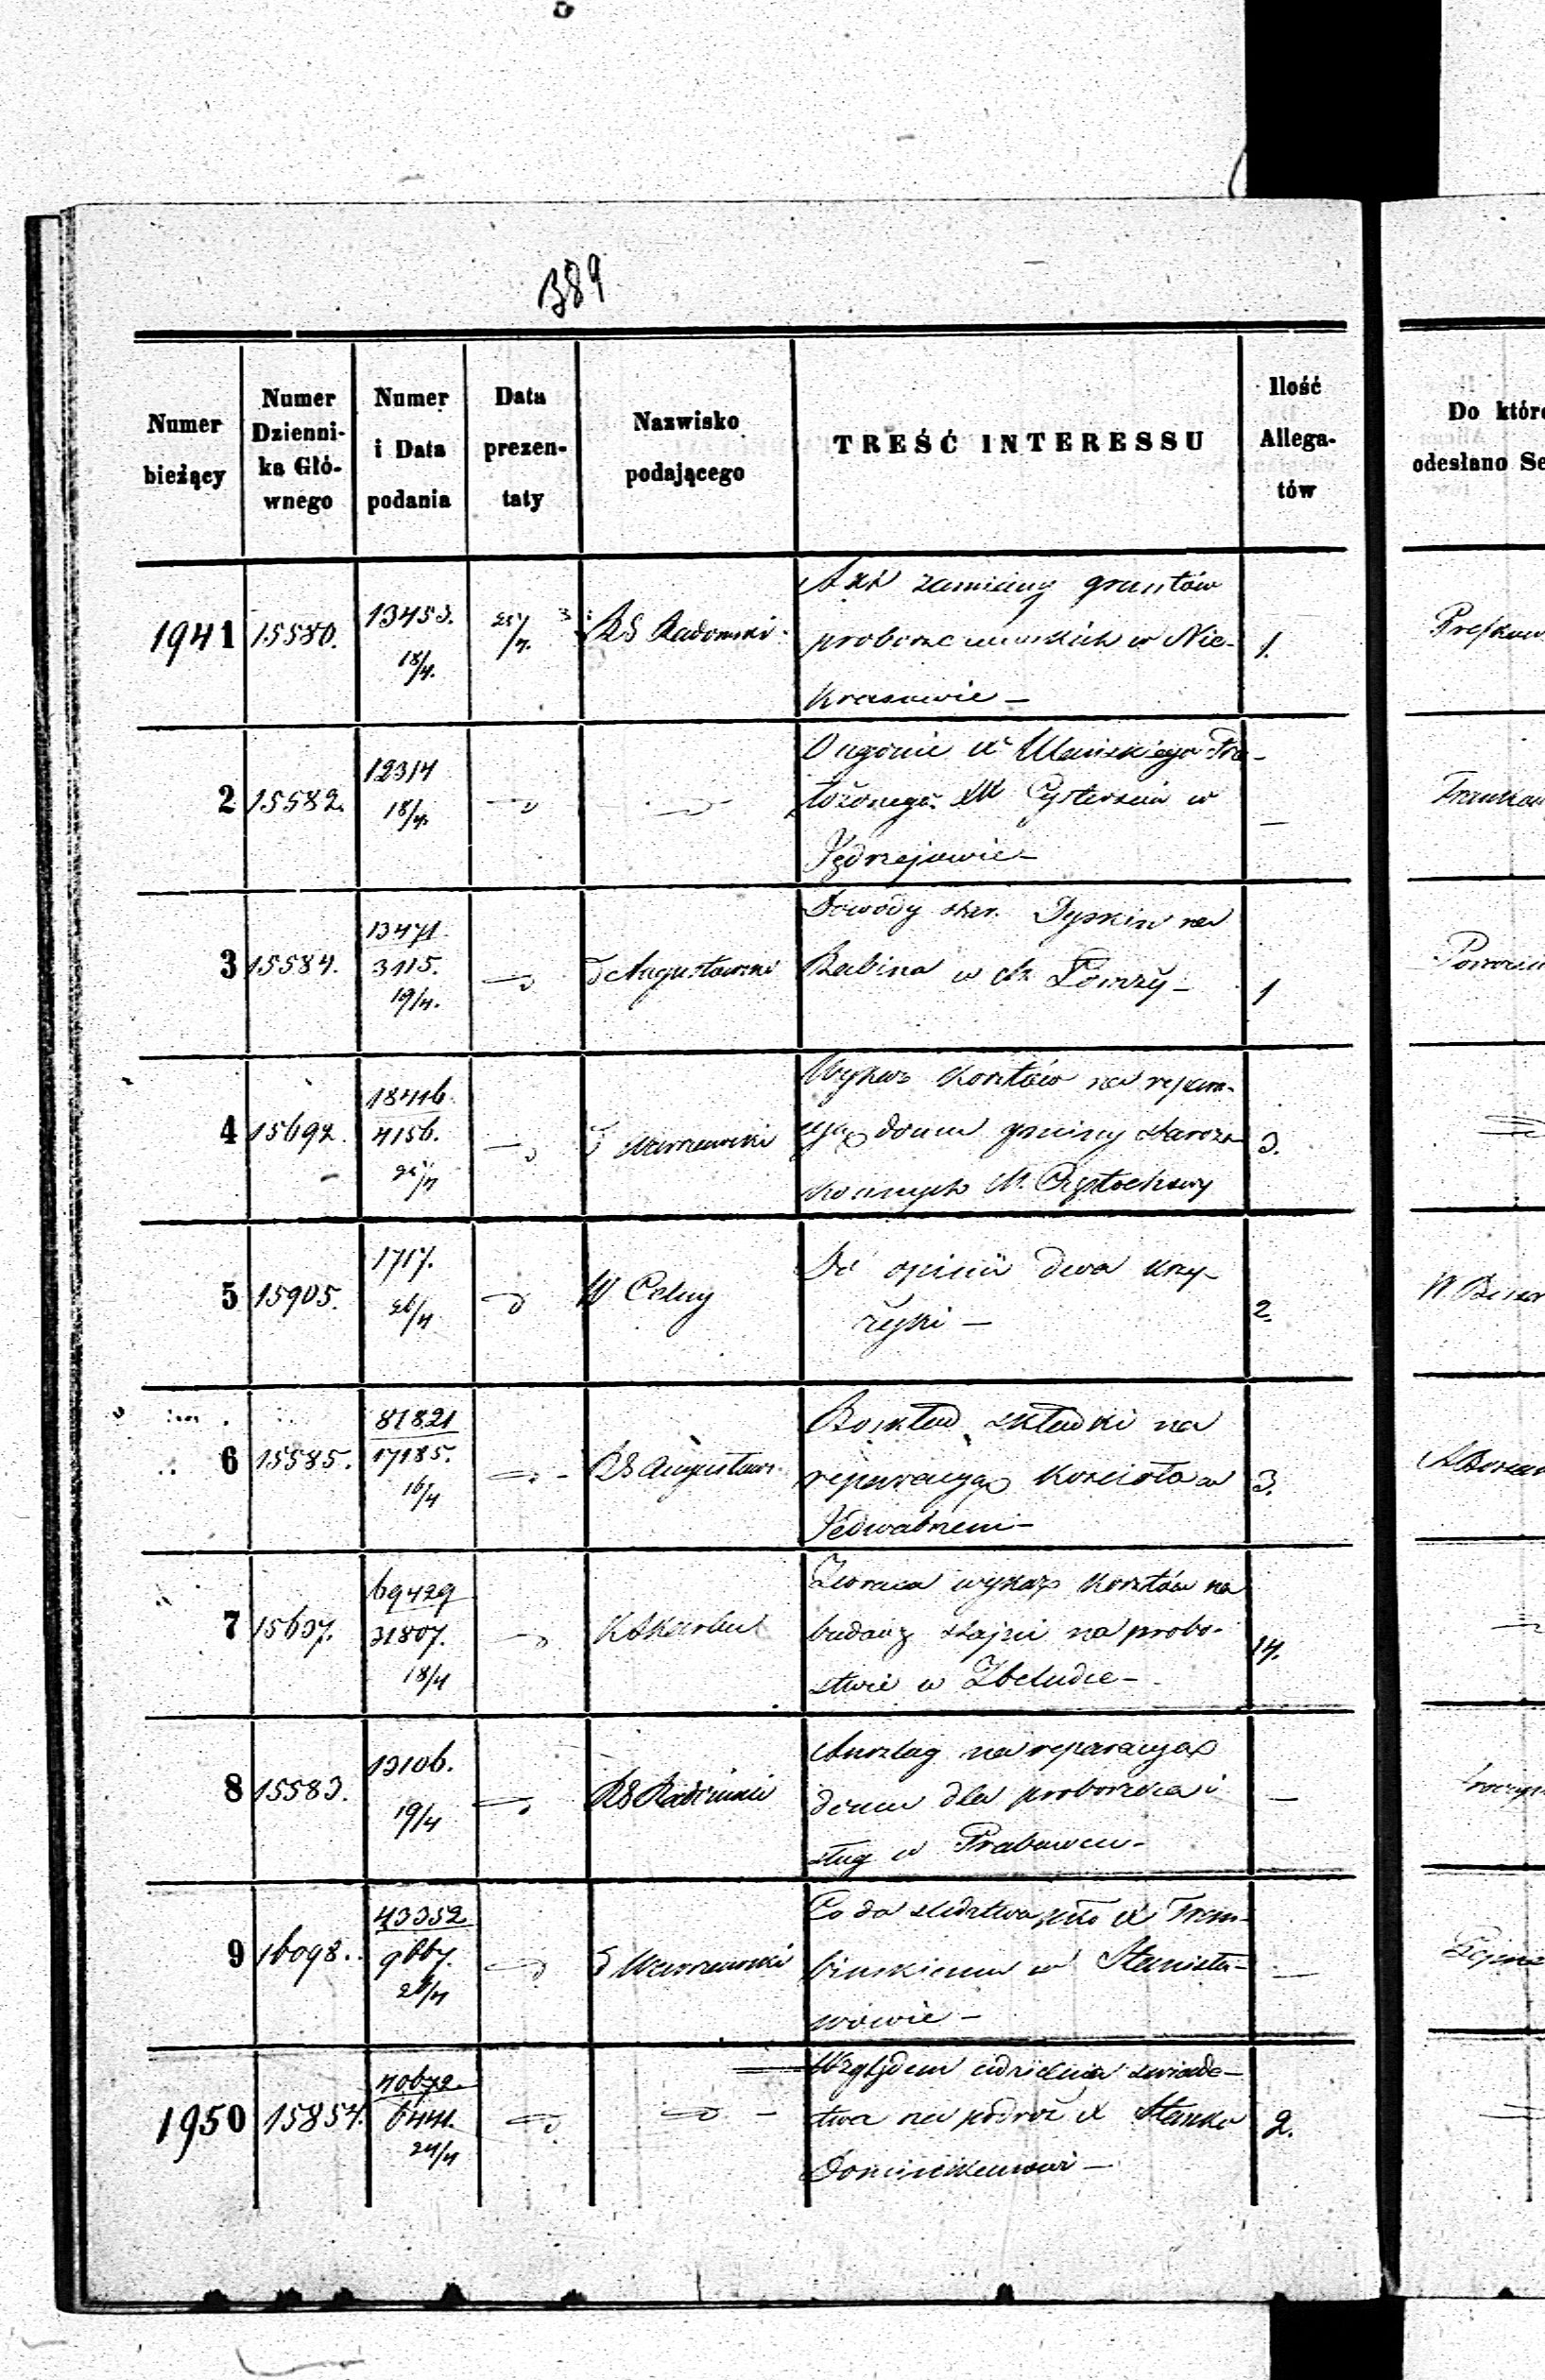 389
Numer bieżący | Numer Dzienni-ka Głó-wnego | Numer i Data podania | Data prezen-taty | Nazwisko podającego | TREŚĆ INTERESSU | Ilość Allega-tów | Do któr
odesłano Se
1941 | 15580. | 13453. 18/4. | 25/4. | RG Radomski | Akt zamiany gruntów
proboszczowskich w Nie-
krasowie – | 1.
2 | 15582. | 12314 18/4. | O zgonie X
tożonego XX Cystersów w
Jędrzejowie – | –
3 | 15584. | 13471 3115. 19/4. | Augustowski | Dowody star. Dyskin na
Rabina w m. Łomży – | 1
4 | 15692. | 18446. 4156. 25/4 | Warszawski | Wykaz kosztów na repara-
cyą domu gminy staroza-
konnych M. Częstochowy | 3.
5 | 15905. | 1717. 26/4 | W Celny | Do opinii dwa krzy-
żyki – | 2.
6 | 15585. | 81821 17185. 16/4 | RG Augustows. | Rozkład składki na
reparacyą kościoła w
Jedwabnem – | 3.
7 | 15637. | 69429 31807. 18/4 | Zwraca wykaz kosztów na
budowę stajni na probo-
stwie w Zbeludce – | 14.
8 | 15583. | 13106. 19/4 | RG | Anszlag na reparacyą
domu dla proboszcza i
sług w | –
9 | 16098. | 43352 9667. 26/4 | Warszawski | Co do śledztwa X Trem-
bińskiemu w Stanisła-
wowie – | –
1950 | 15854. | 40672. 6441. 24/4 | Względem udzielenia świade-
ctwa na podróż X Stanke
Dominikanowi – | 2.